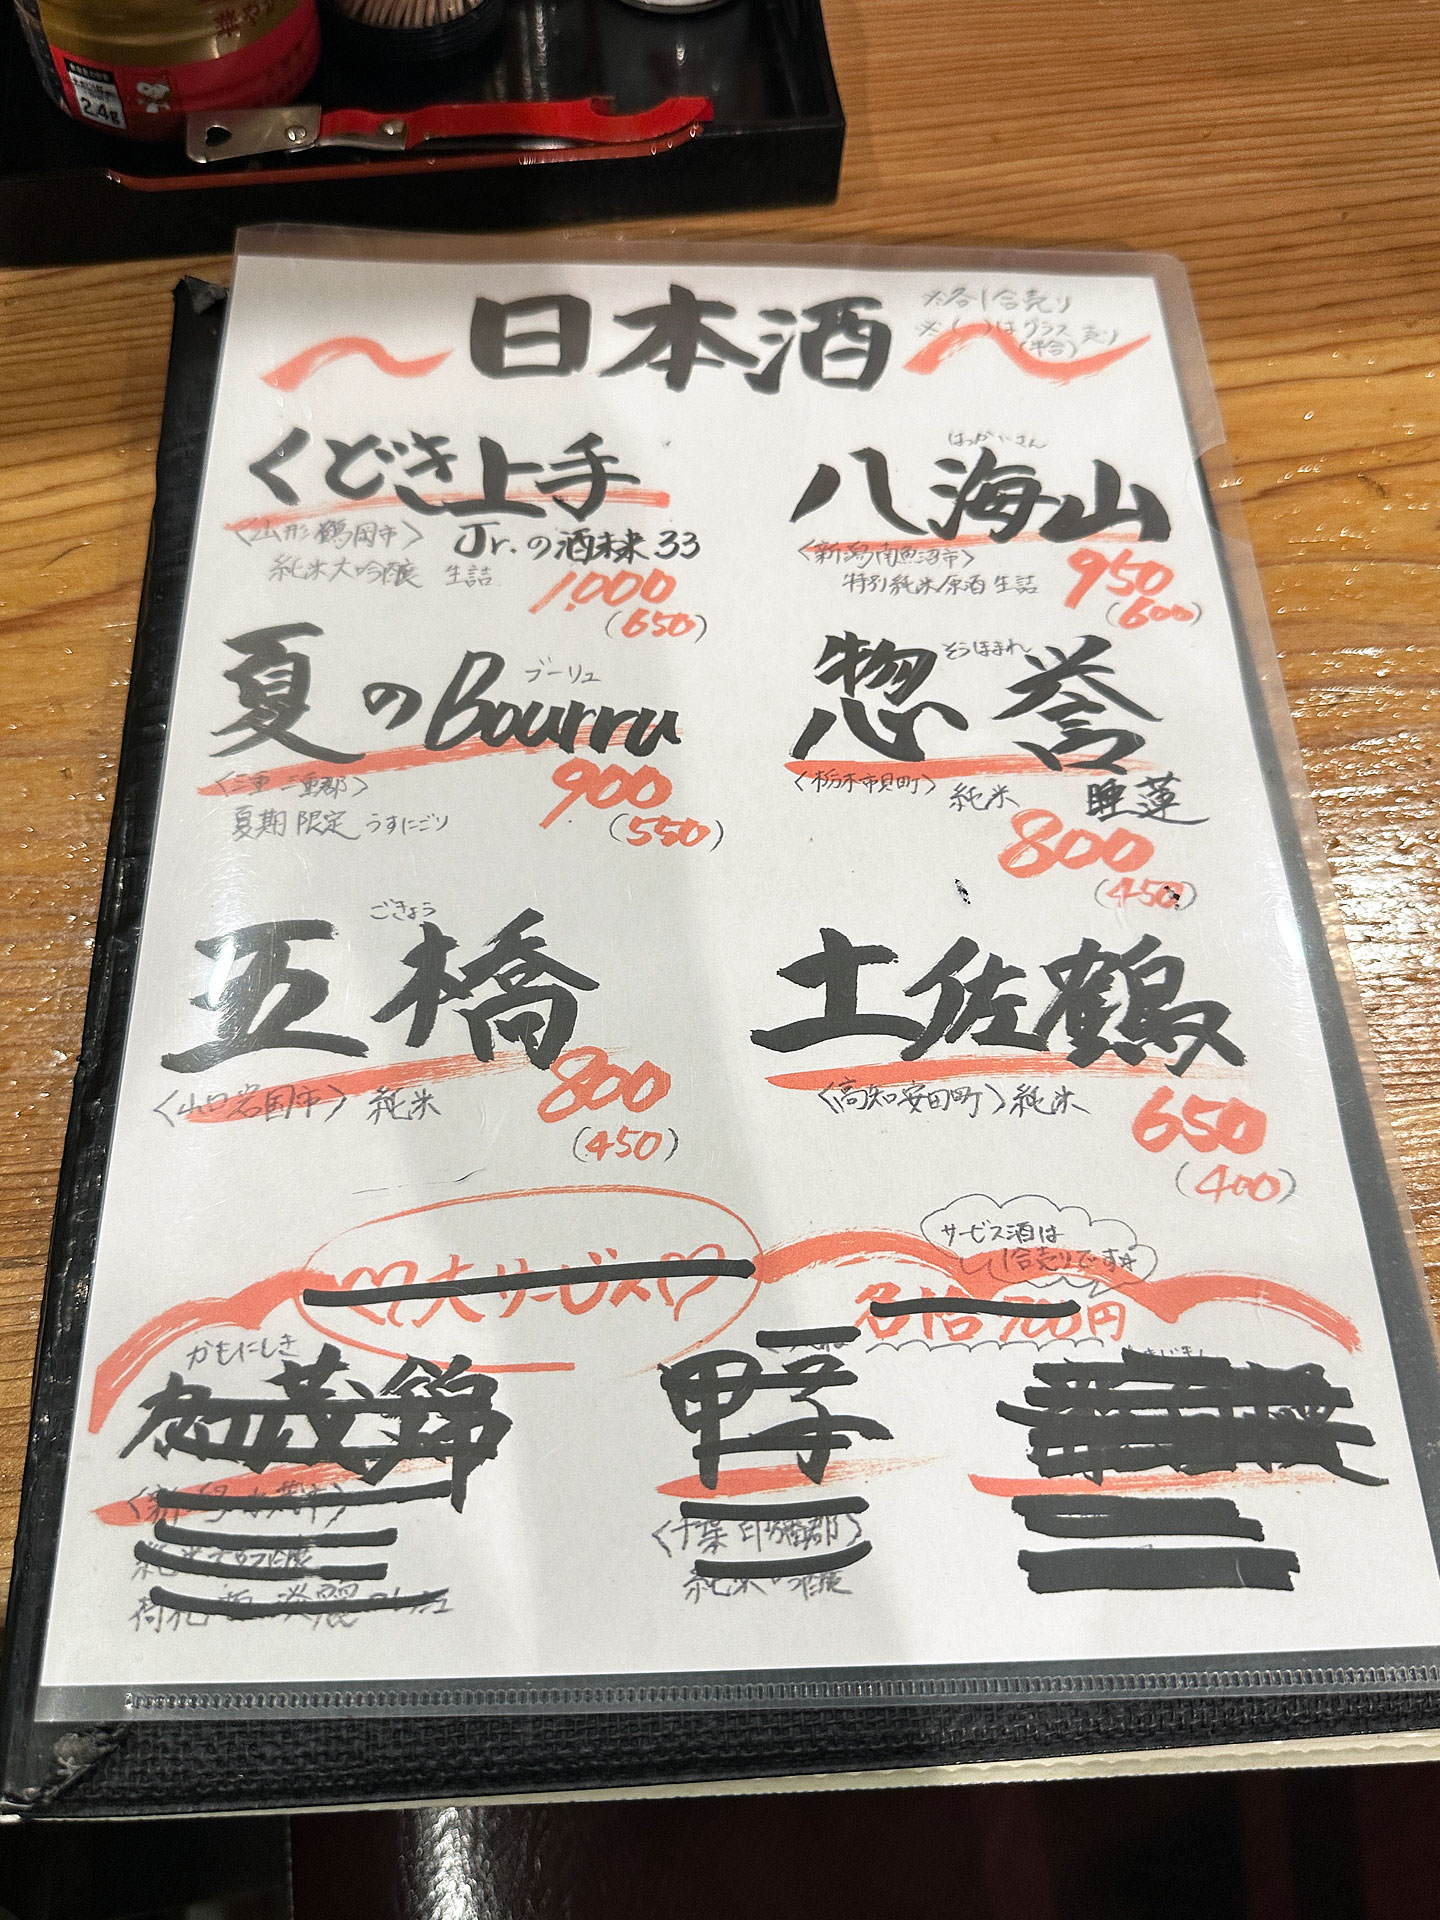 華やか
2.4g
日本酒
※各1合売り
※( )はグラス売り
(半合)
くどき上手
Jr.の酒未来33
〈山形 鶴岡市〉
純米大吟醸 生詰
1,000
(650)
はっかいさん
八海山
〈新潟 南魚沼市〉
特別純米原酒 生詰
950
(600)
ブーリュ
夏のBourru
〈三重 三重郡〉
夏期限定 うすにごり
900
(550)
そうほまれ
惣誉
〈栃木 市貝町〉
純米 睡蓮
800
(450)
ごきょう
五橋
〈山口 岩国市〉 純米
800
(450)
土佐鶴
〈高知 安田町〉純米
650
(400)
♡大サービス♡
サービス酒は
1合売りです
各1合 700円
かもにしき
加茂錦
荷札酒 淡麗
甲子
〈千葉 印旛郡〉
純米吟醸